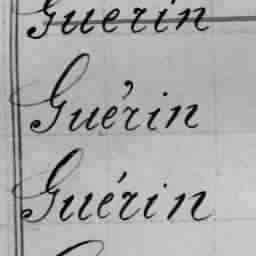 Guerin
Guérin
Guérin